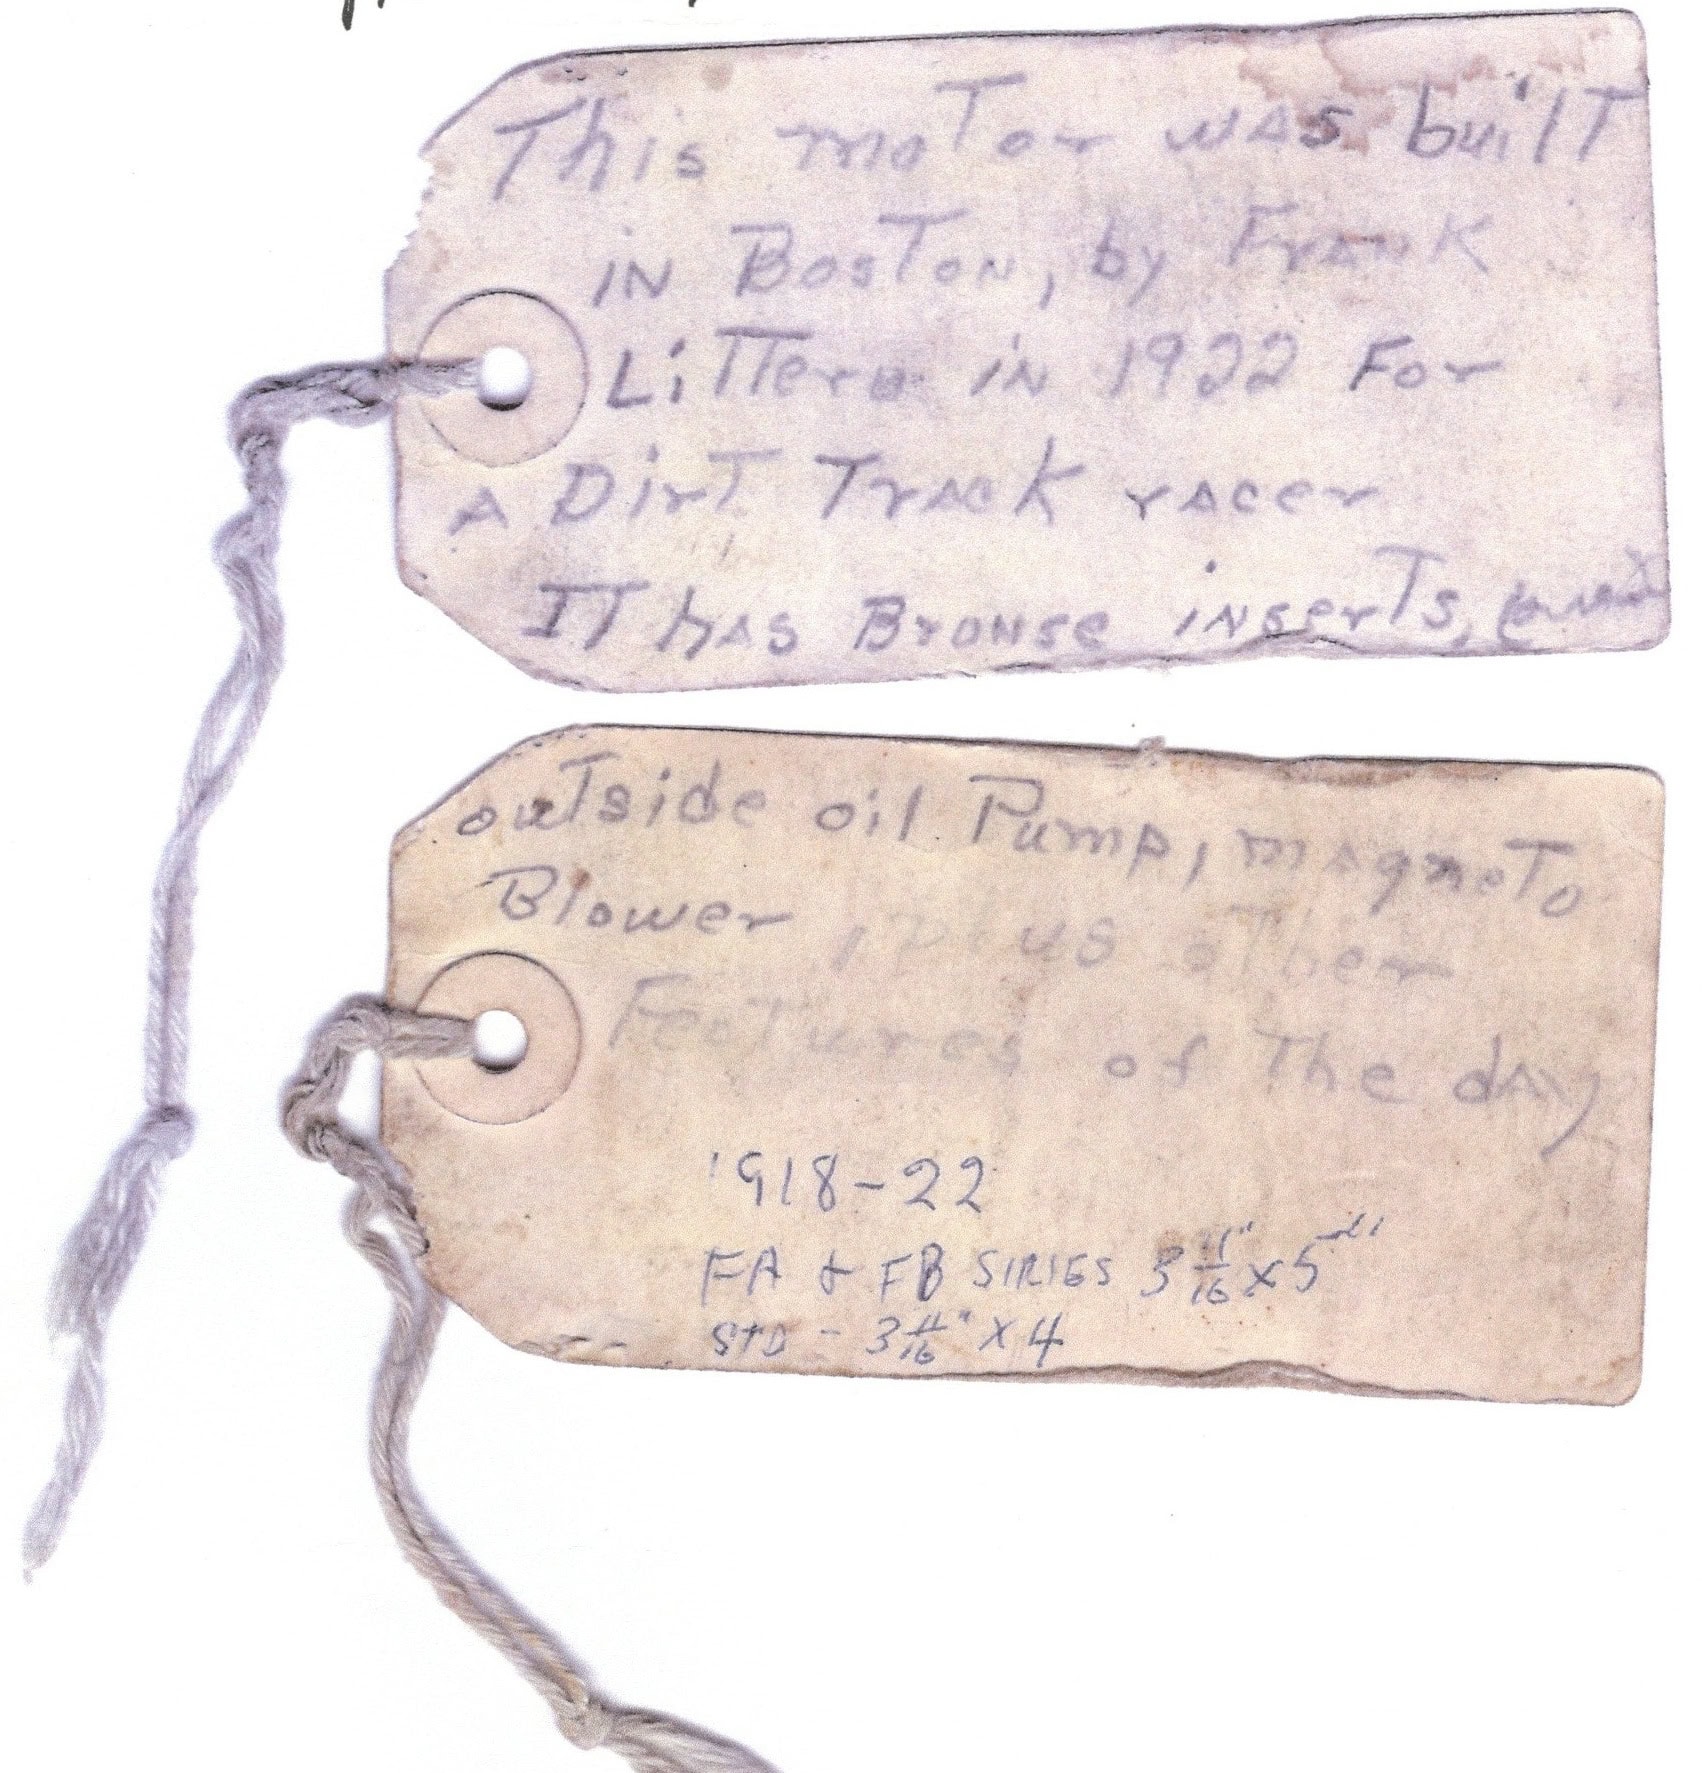 This moTor was builT
in BosTon, by Frank
in 1922 For
A DirT Track racer
IT has Bronse inserTs,
outside oil Pump, magneTo
Blower, Plus other
FeaTures of The day
1918-22
FA & FB SIRIES 3 11/16" x 5
STD - 3 11/16" x 4